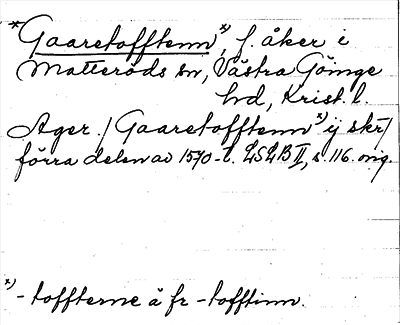 *Gaaretofftenn*), f. åker i
Matteröds sn, Västra Göinge
hd, Krist. l.
Ager. / Gaaretofftenn*) ij skr /
förra delen av 1570-t. LSLB II, s. 116. orig.
*) - toffterne å fr - tofftinn.